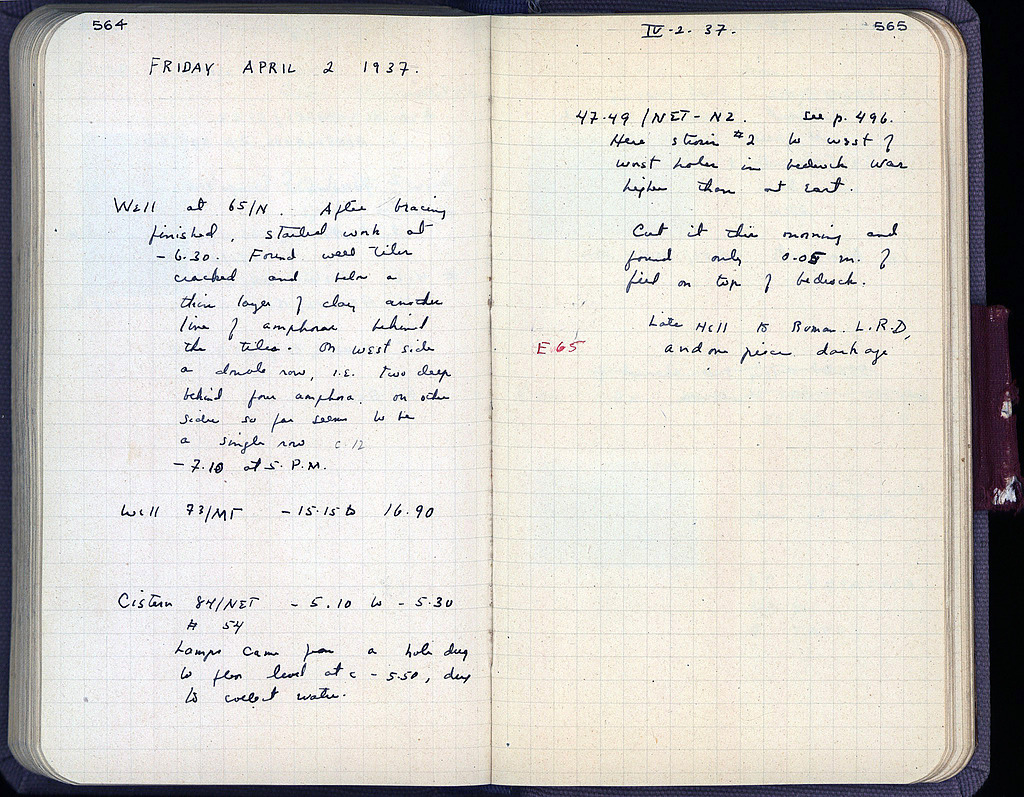 564
FRIDAY APRIL 2 1937.
Well at 65/N. After bracing
finished, started work at
- 6.30. Found well tiles
cracked and below a
thin layer of clay another
line of amphorae behind
the tiles. On west side
a double row, i.e. two deep
behind four amphora. on other
sides so far seems to be
a single row c. 12
- 7.10 at 5. P.M.
Well 73/MΓ - 15.15 to 16.90
Cistern 84/NΣT - 5.10 to - 5.30
# 54
Lamps came from a hole dug
to floor level at c - 5.50, dug
to collect water.
IV-2. 37.
565
47-49/NΣT-NZ. See p. 496.
Here #2 to west of
holes in bedrock was
higher than at east.
Cut it this morning and
found only 0.05 m. of
fill on top of bedrock.
Late Hell to Roman. L.R.D,
E 65
and one piece dark age